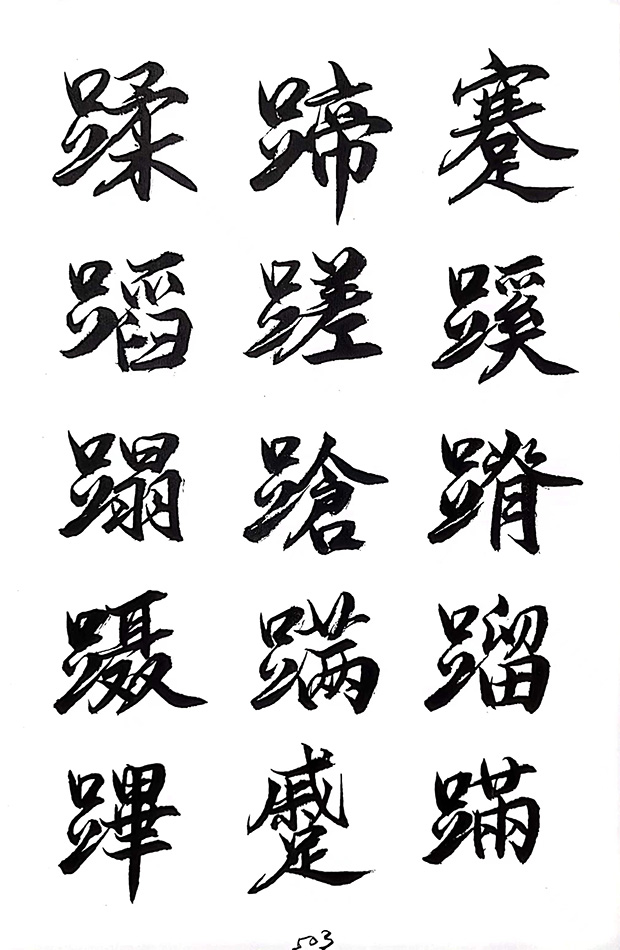 蹂蹄蹇
蹈蹉蹊
蹋蹌蹐
蹑蹒蹓
蹕蹙蹣
503